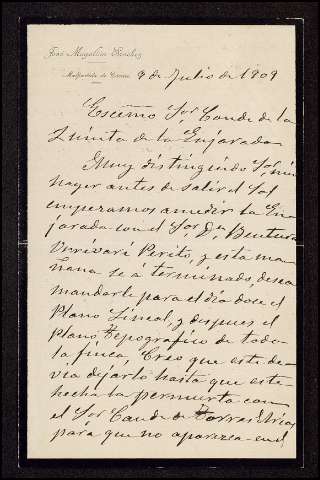 José Magallón Sánchez
Malpartida de Cáceres
9 de Julio de 1909
Escemo Sor Conde de la
Quinta de la Enjarada
Muy distinguido Sor, mio
hayer antes de salir el Sol
empezamos amedir la En
jarada con el Sor Dn Bentura
Perito, y esta ma
ñana se á terminado, desea
mandarle para el dia doce el
Plano Lineal, y despues el
plano Topografico de toda
la finca, Creo que este de-
via dejarlo hasta que este
hecha la permuta con
el Sor Conde de Torres Arias
para que no aparezca en el